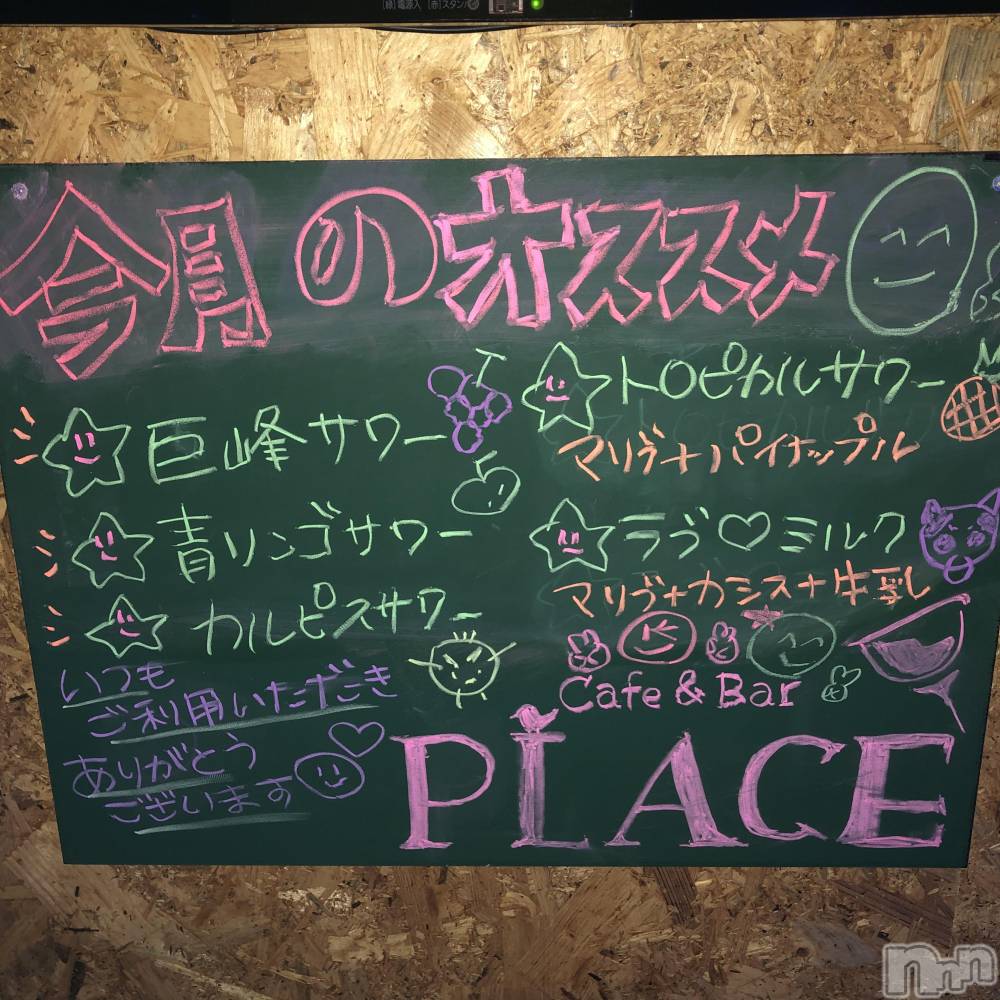 [緑]電源入 [赤]スタンバイ
今月のオススメ
巨峰サワー
青リンゴサワー
カルピスサワー
トロピカルサワー
マリブ+パイナップル
ラブ♡ミルク
マリブ+カシス+牛乳
いつも
ご利用いただき
ありがとう
ございます
Cafe & Bar
PLACE
nnn